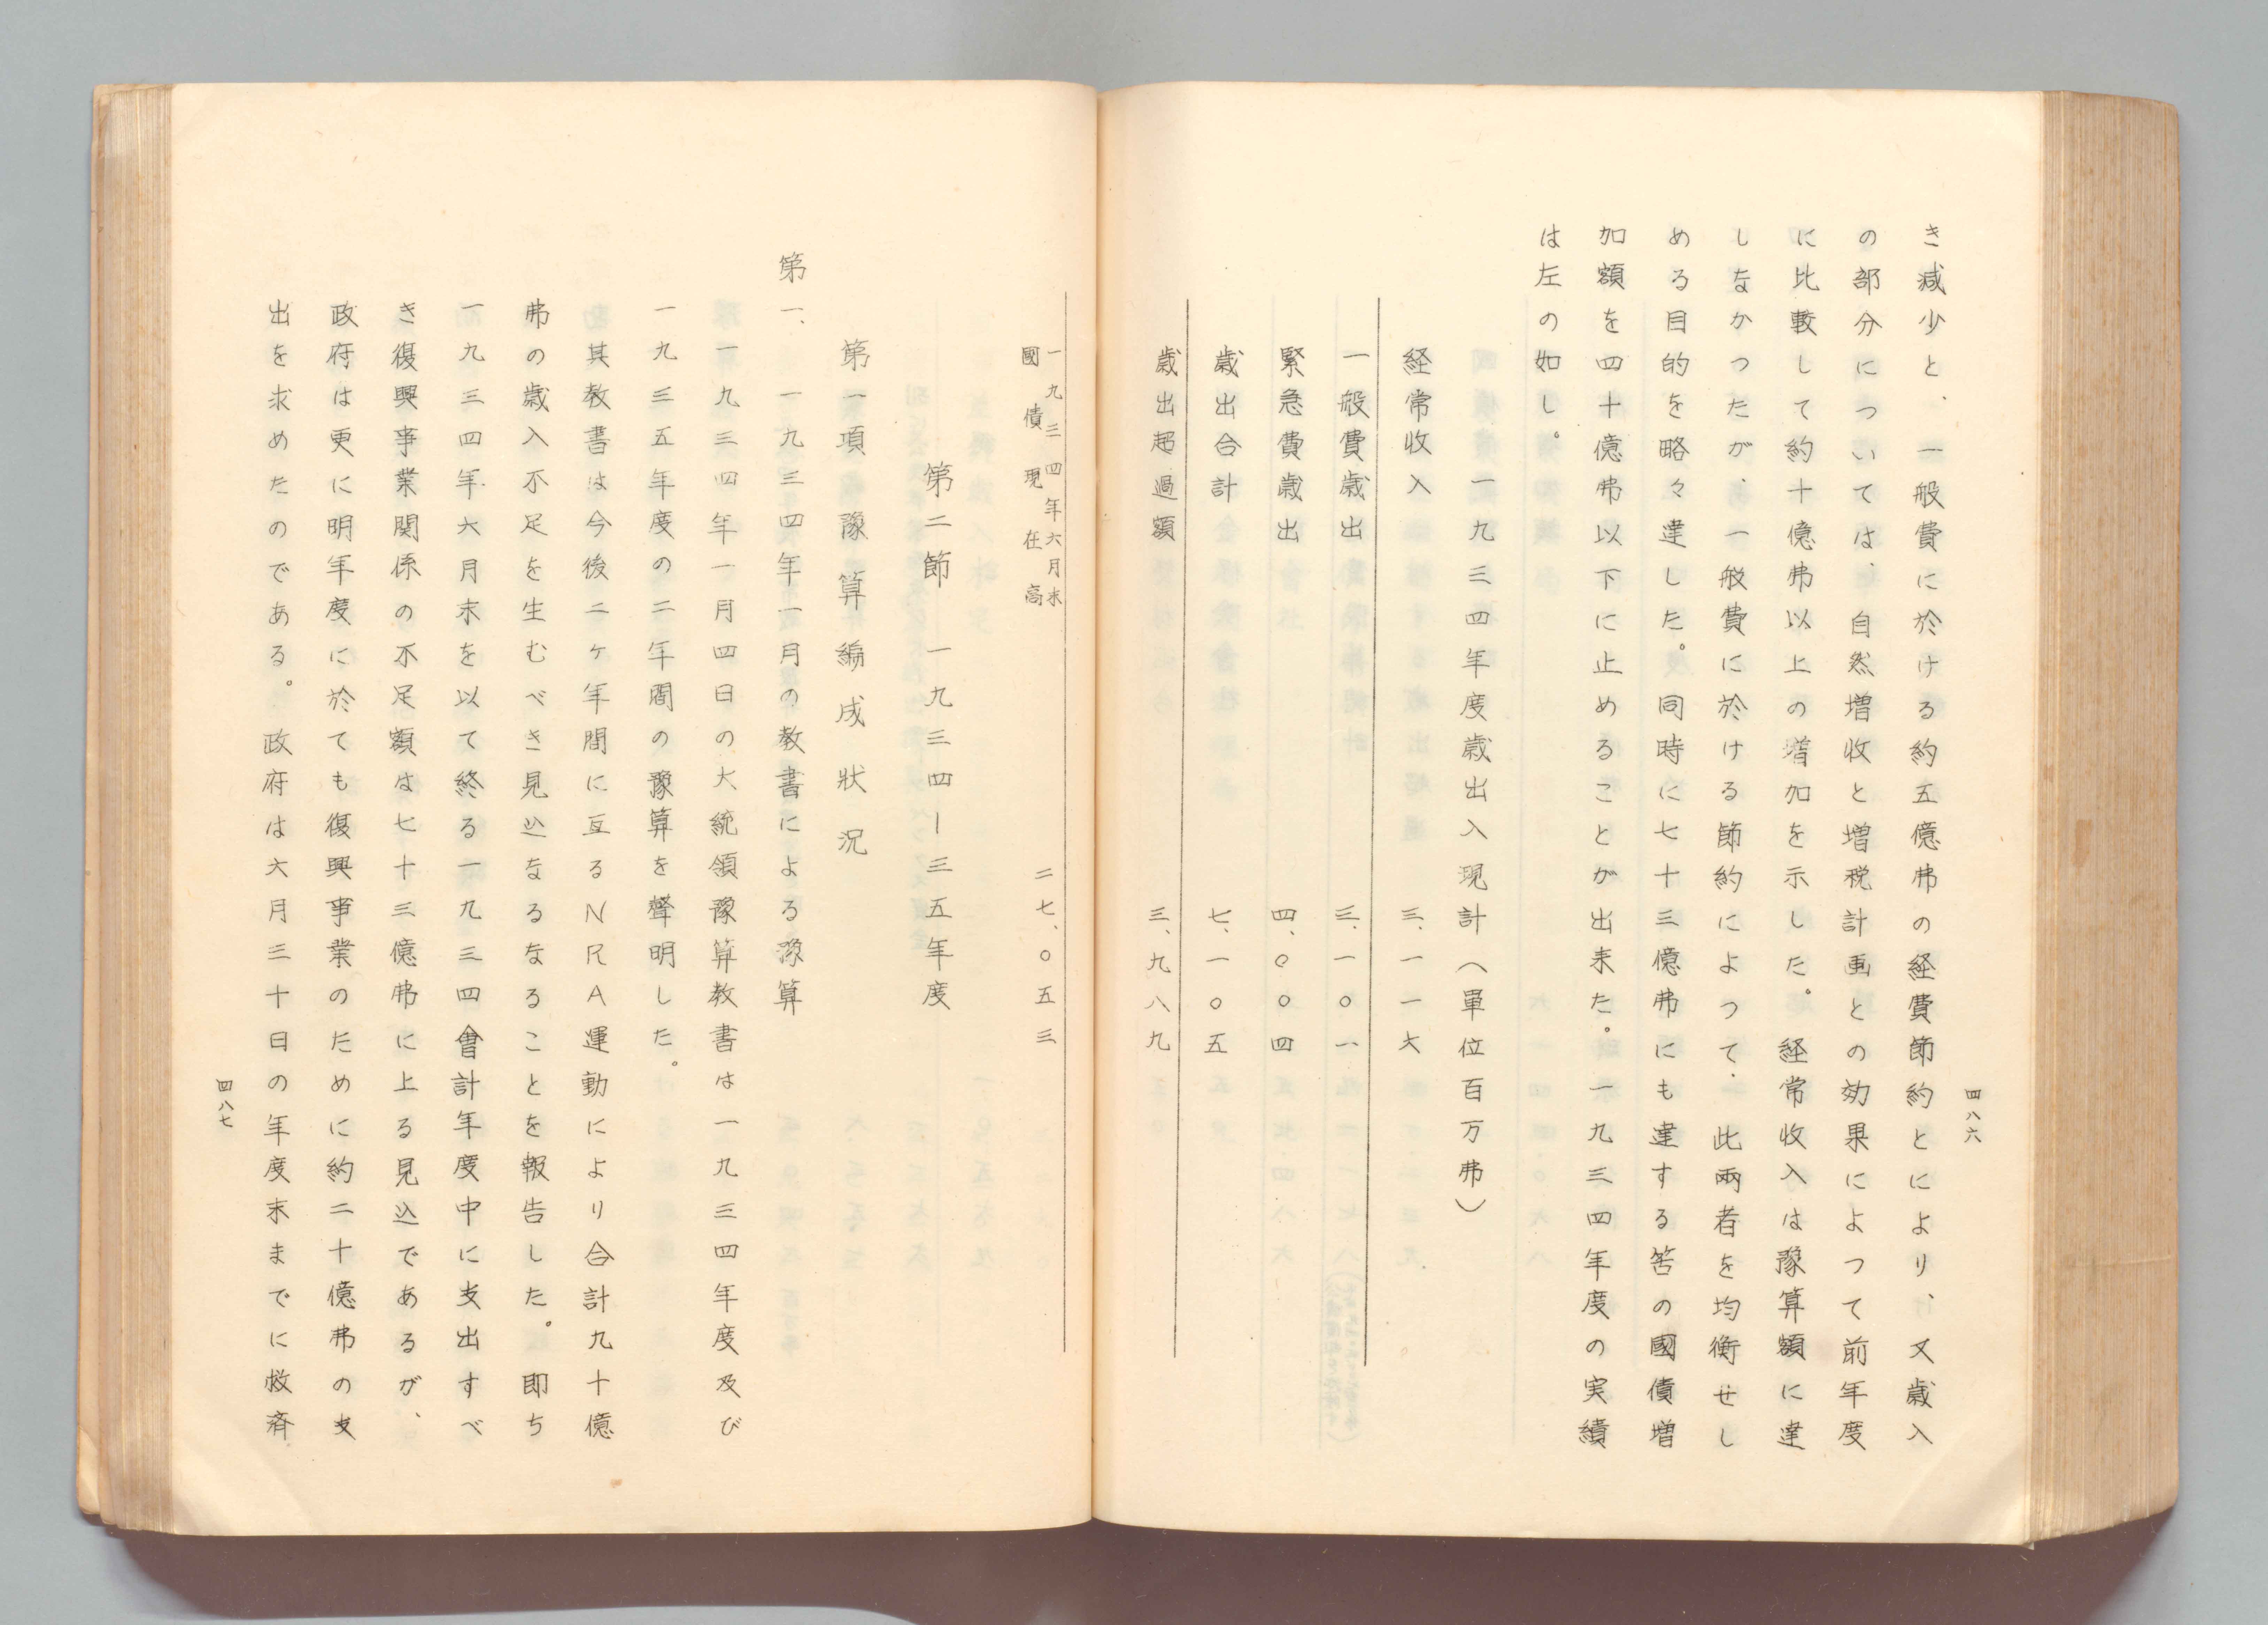 四八六
き減少と、一般費に於ける約五億弗の経費節約とにより、又歳入
の部分については、自然増收と増税計画との効果によつて前年度
に比較して約十億弗以上の増加を示した。経常收入は豫算額に達
しなかつたが、一般費に於ける節約によつて、此兩者を均衡せし
める目的を略々達した。同時に七十三億弗にも達する筈の國債増
加額を四十億弗以下に止めることが出来た。一九三四年度の実績
は左の如し。
一九三四年度歳出入現計（單位百万弗）
経常收入 三、一一六
一般費歳出 三、一〇一
緊急費歳出 四、〇〇四
歳出合計 七、一〇五
歳出超過額 三、九八九
一九三四年六月末
國債現在高 二七、〇五三
第二節 一九三四ー三五年度
第一項 豫算編成狀況
第一、一九三四年一月の教書による豫算
一九三四年一月四日の大統領豫算教書は一九三四年度及び
一九三五年度の二年間の豫算を聲明した。
其教書は今後二ヶ年間に亙るNRA運動により合計九十億
弗の歳入不足を生むべき見込なるなることを報告した。即ち
一九三四年六月末を以て終る一九三四會計年度中に支出すべ
き復興事業関係の不足額は七十三億弗に上る見込であるが、
政府は更に明年度に於ても復興事業のために約二十億弗の支
出を求めたのである。政府は六月三十日の年度末までに救済
四八七